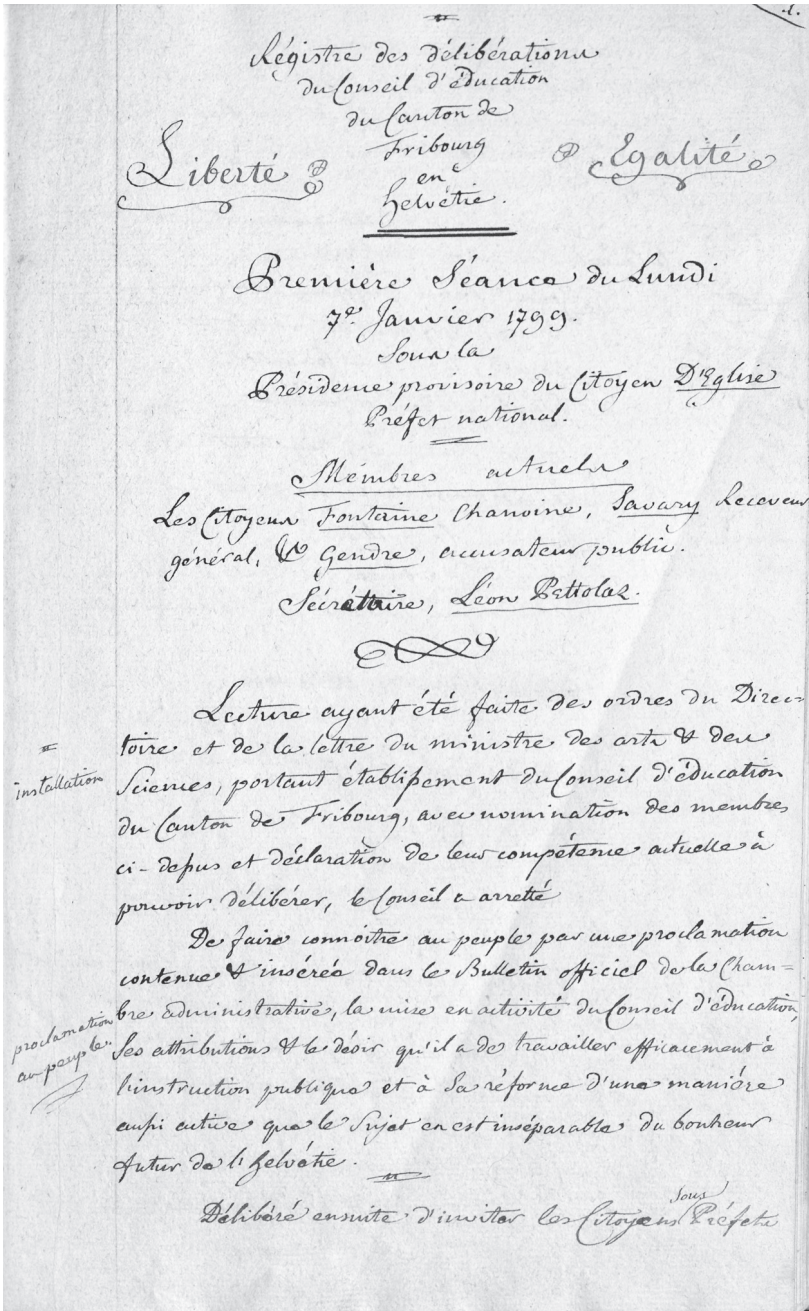 1.
Régistre des délibérations
du Conseil d'éducation
du Canton de
Fribourg
Liberté
Egalité
en
helvétie.
Première Séance du Lundi
7e. Janvier 1799.
Sous la
Présidence provisoire du Citoyen D'Eglise
Préfet national.
Mémbres actuels
Les Citoyens Fontaine Chanoine, Savary Receveur
général, & Gendre, accusateur public.
Sécrétaire, Léon Pettolaz.
Lecture ayant été faite des ordres du Direc=
toire et de la lettre du ministre des arts & des
installation
Sciences, portant établissement du Conseil d'éducation
du Canton de Fribourg, avec nomination des membres
ci-dessus et déclaration de leur compétence actuelle à
pouvoir délibérer, le Conseil a arretté
De faire connoître au peuple par une proclamation
contenue & inséréé dans le Bulletin officiel de la Cham=
bre administrative, la mise en activité du Conseil d'éducation,
proclamation
au peuple.
Ses attributions & le désir qu'il a de travailler efficacement à
l'instruction publique et à sa réforme d'une maniére
aussi active que le Sujet en est inséparable du bonheur
futur de l'helvétie.
Délibéré ensuite d'inviter les Citoyens Sous Préfets